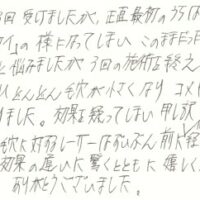 3回受けましたが、正直最初のうちは
の様になってしまい このままだった
と悩みましたが 3回の施術を終え
どんどん毛穴が小さくなり コメ
ました。効果を疑ってしまい 申し訳
毛穴に対するレーザーはずいぶん前に経
効果の違いに驚くとともに 嬉しく
ありがとうございました。